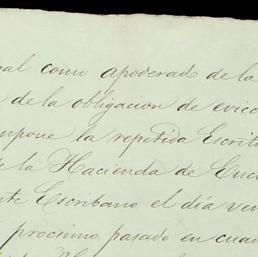 como apoderado de la
de la obligacion de evicc
mpone la repetida Escritu
de la Hacienda de Enc
te Escribano el día ve
procsimo pasado en cuan